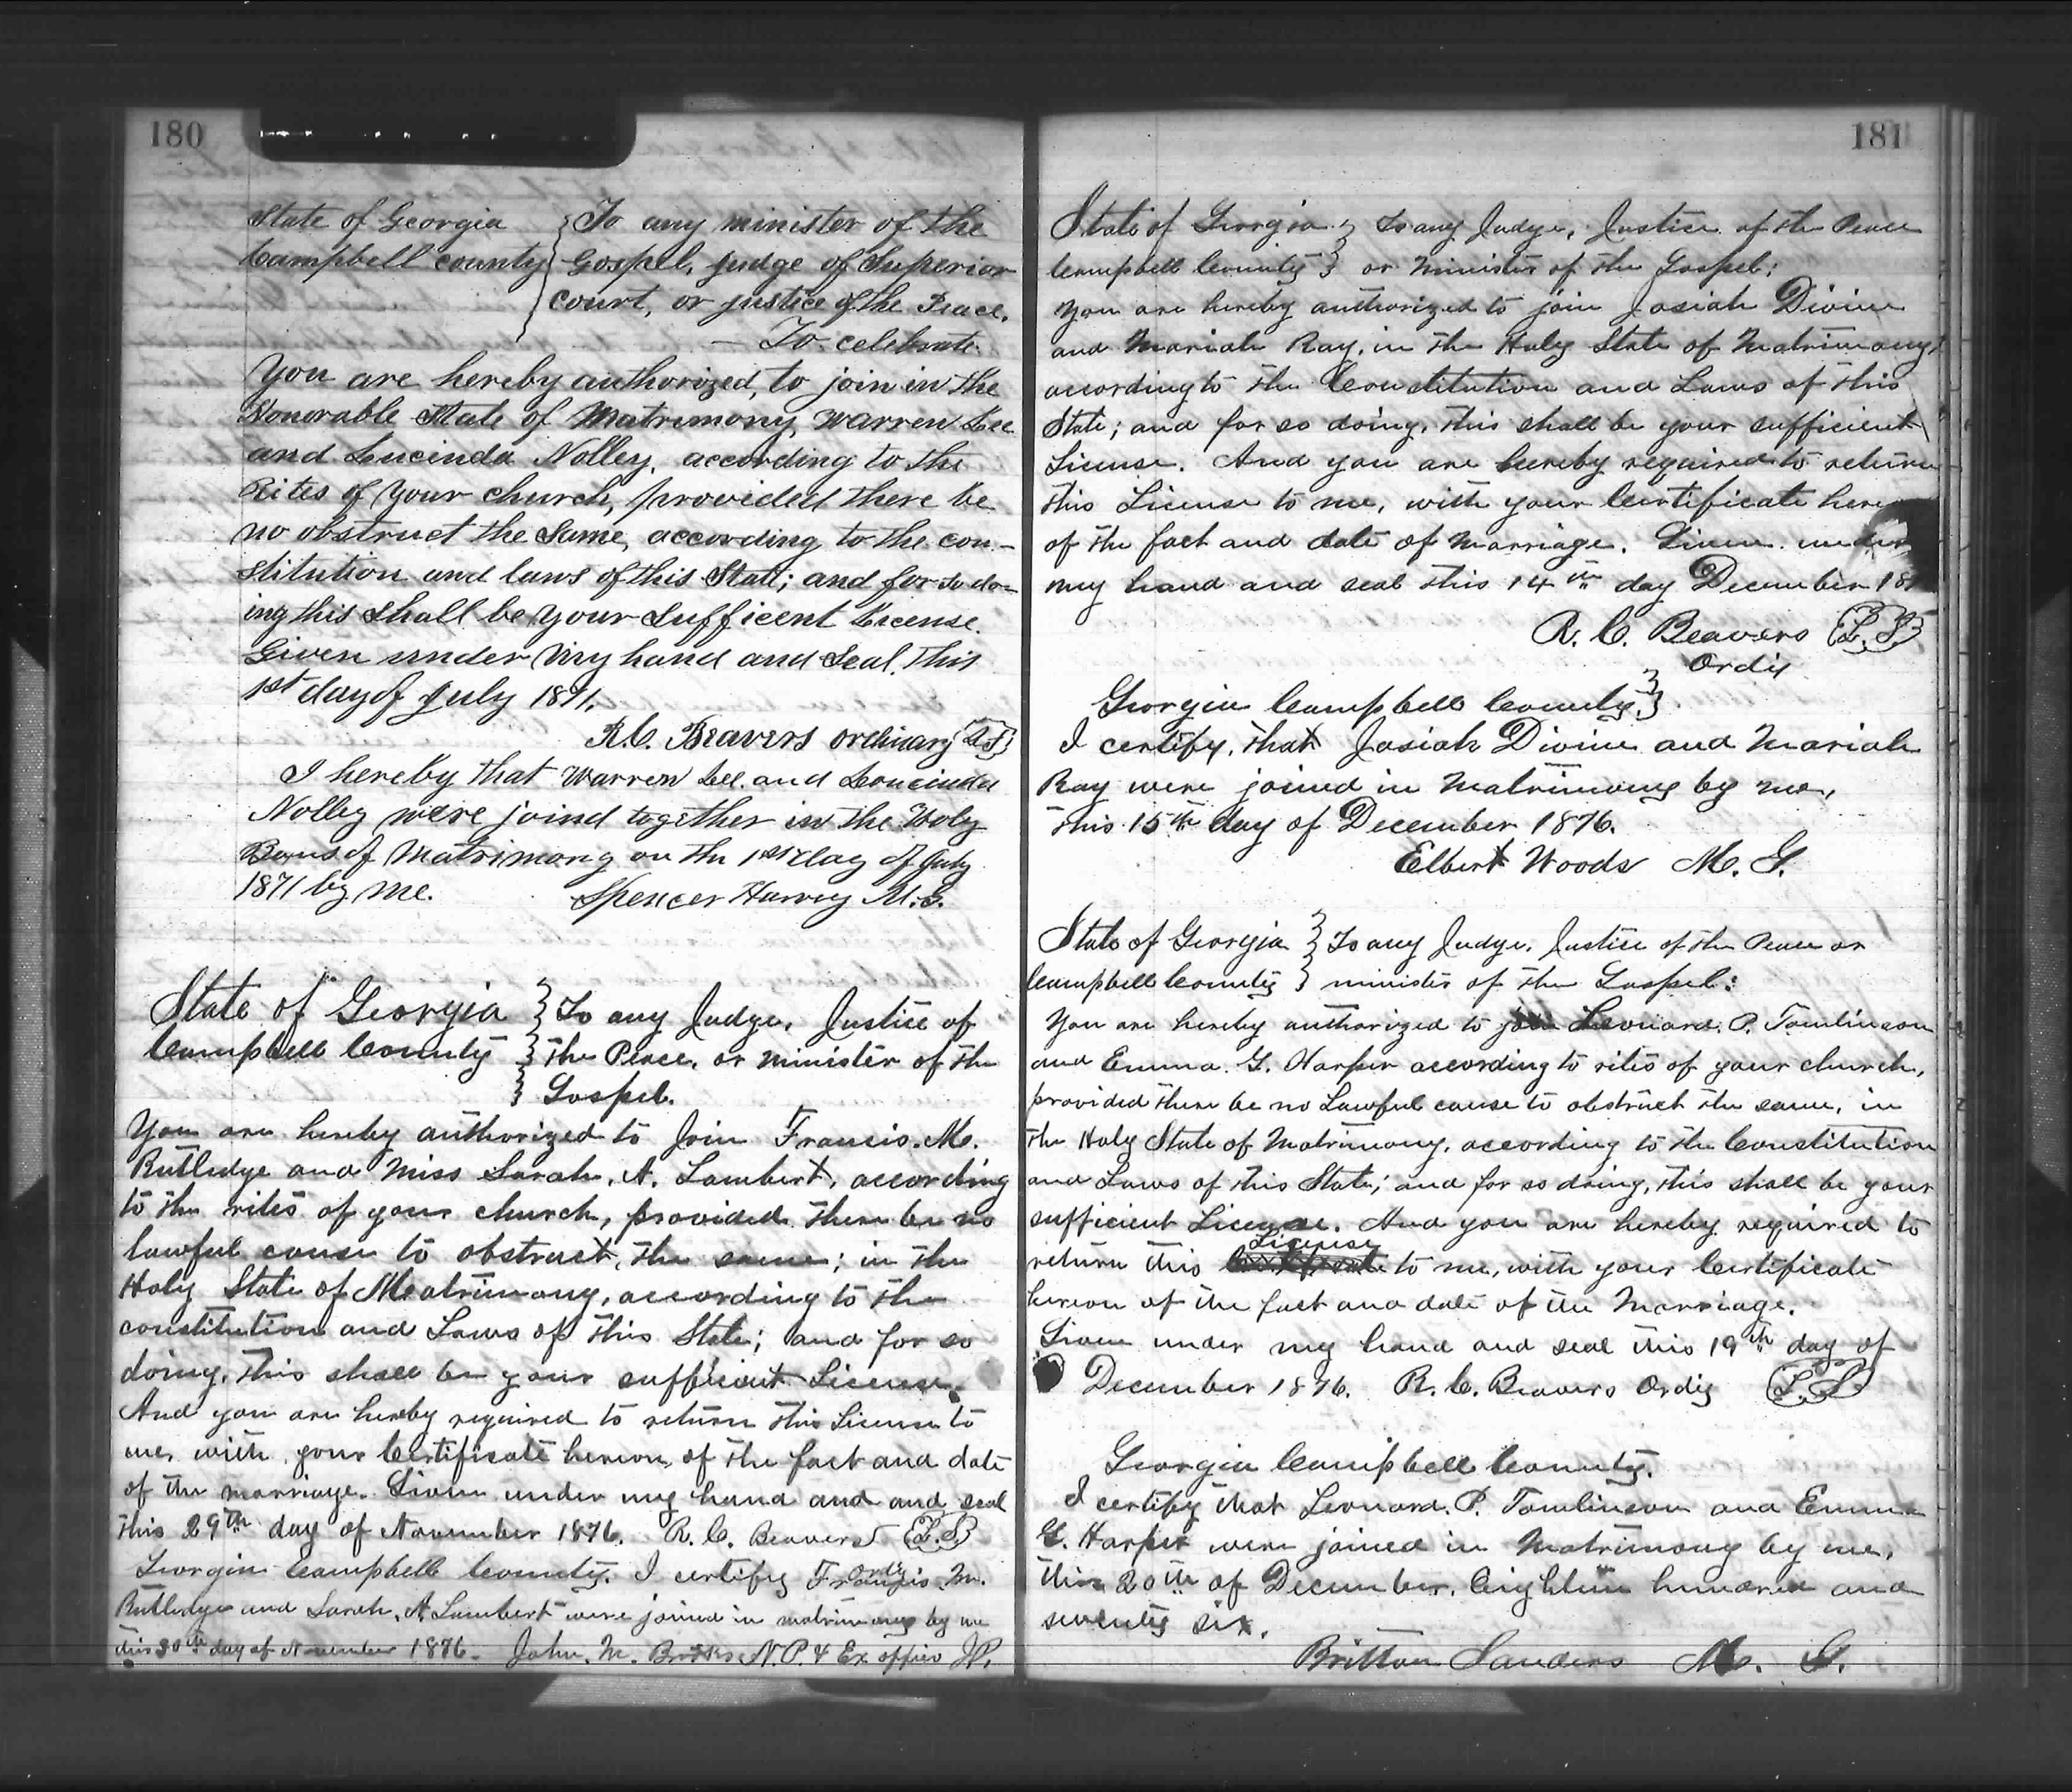 180
State of Georgia } To any minister of the
Campbell county } Gospel, judge of Superior
court, or justice of the Peace.
— To celebrate
You are hereby authorized, to join in the
Honorable State of Matrimony, Warren Lee
and Lucinda Nolley, according to the
Rites of your church, provided there be
no obstruct the Same, according to the con-
stitution and laws of this State; and for so do-
ing this shall be your Sufficent License.
Given under my hand and Seal. This
1st day of July 1871.
R.C. Beavers ordinary (L.S)
I hereby that Warren Lee and Loucinda
Nolley were joind together in the Holy
of Matrimony on the 1st day of July
1871 by me. Spencer Harvey M.G.
State of Georgia } To any Judge, Justice of
Campbell County } the Peace, or minister of the
} Gospel.
You are hereby authorized to Join Francis. M.
Rutledge and Miss Sarah. A. Lambert, according
to the rites of your church, provided there be no
lawful cause to obstruct, the same; in the
Holy State of Matrimony, according to the
constitution and Laws of this State; and for so
doing, this shall be your sufficient License.
And you are hereby required to return this License to
me, with your Certificate hereon, of the fact and date
of the marriage. Given under my hand and and seal
this 29th day of November 1876. R. C. Beavers (L.S)
Ordy
Georgia Campbell County. I certify Francis M.
Rutledge and Sarah. A Lambert were joined in matrimony by me
this 30th day of November 1876. John. M. Brooks N.P. & Ex officio J.P.
181
State of Georgia } To any Judge, Justice of the Peace
Campbell County } or Minister of the Gospel:
You are hereby authorized to join Josiah Divine
and Mariah Ray, in the Holy State of Matrimony,
according to the Constitution and Laws of this
State; and for so doing, this shall be your sufficient
License. And you are hereby required to return
this License to me, with your Certificate here
of the fact and date of Marriage. Given under
my hand and seal this 14th day December 18
R. C. Beavers (L.S)
Ordy
Georgia Campbell County.}
I certify, that Josiah Divine and Mariah
Ray were joined in Matrimony by me,
this 15th day of December 1876.
Elbert Woods M. G.
State of Georgia } To any Judge, Justice of the Peace or
Campbell County } minister of the Gospel:
You are hereby authorized to join Leonard. P. Tomlinson
and Emma. G. Harper according to rites of your church,
provided there be no Lawful cause to obstruct the same, in
the Holy State of Matrimony, according to the Constitution
and Laws of this State; and for so doing, this shall be your
sufficient License. And you are hereby required to
return this License to me, with your Certificate
hereon of the fact and date of the Marriage.
Given under my hand and seal this 19th day of
December 1876. R. C. Beavers Ordy (L.S)
Georgia Campbell County.
I certify that Leonard. P. Tomlinson and Emma
G. Harper were joined in Matrimony by me,
this 20th of December, Eighteen hundred and
seventy six.
Britton Sanders M. G.